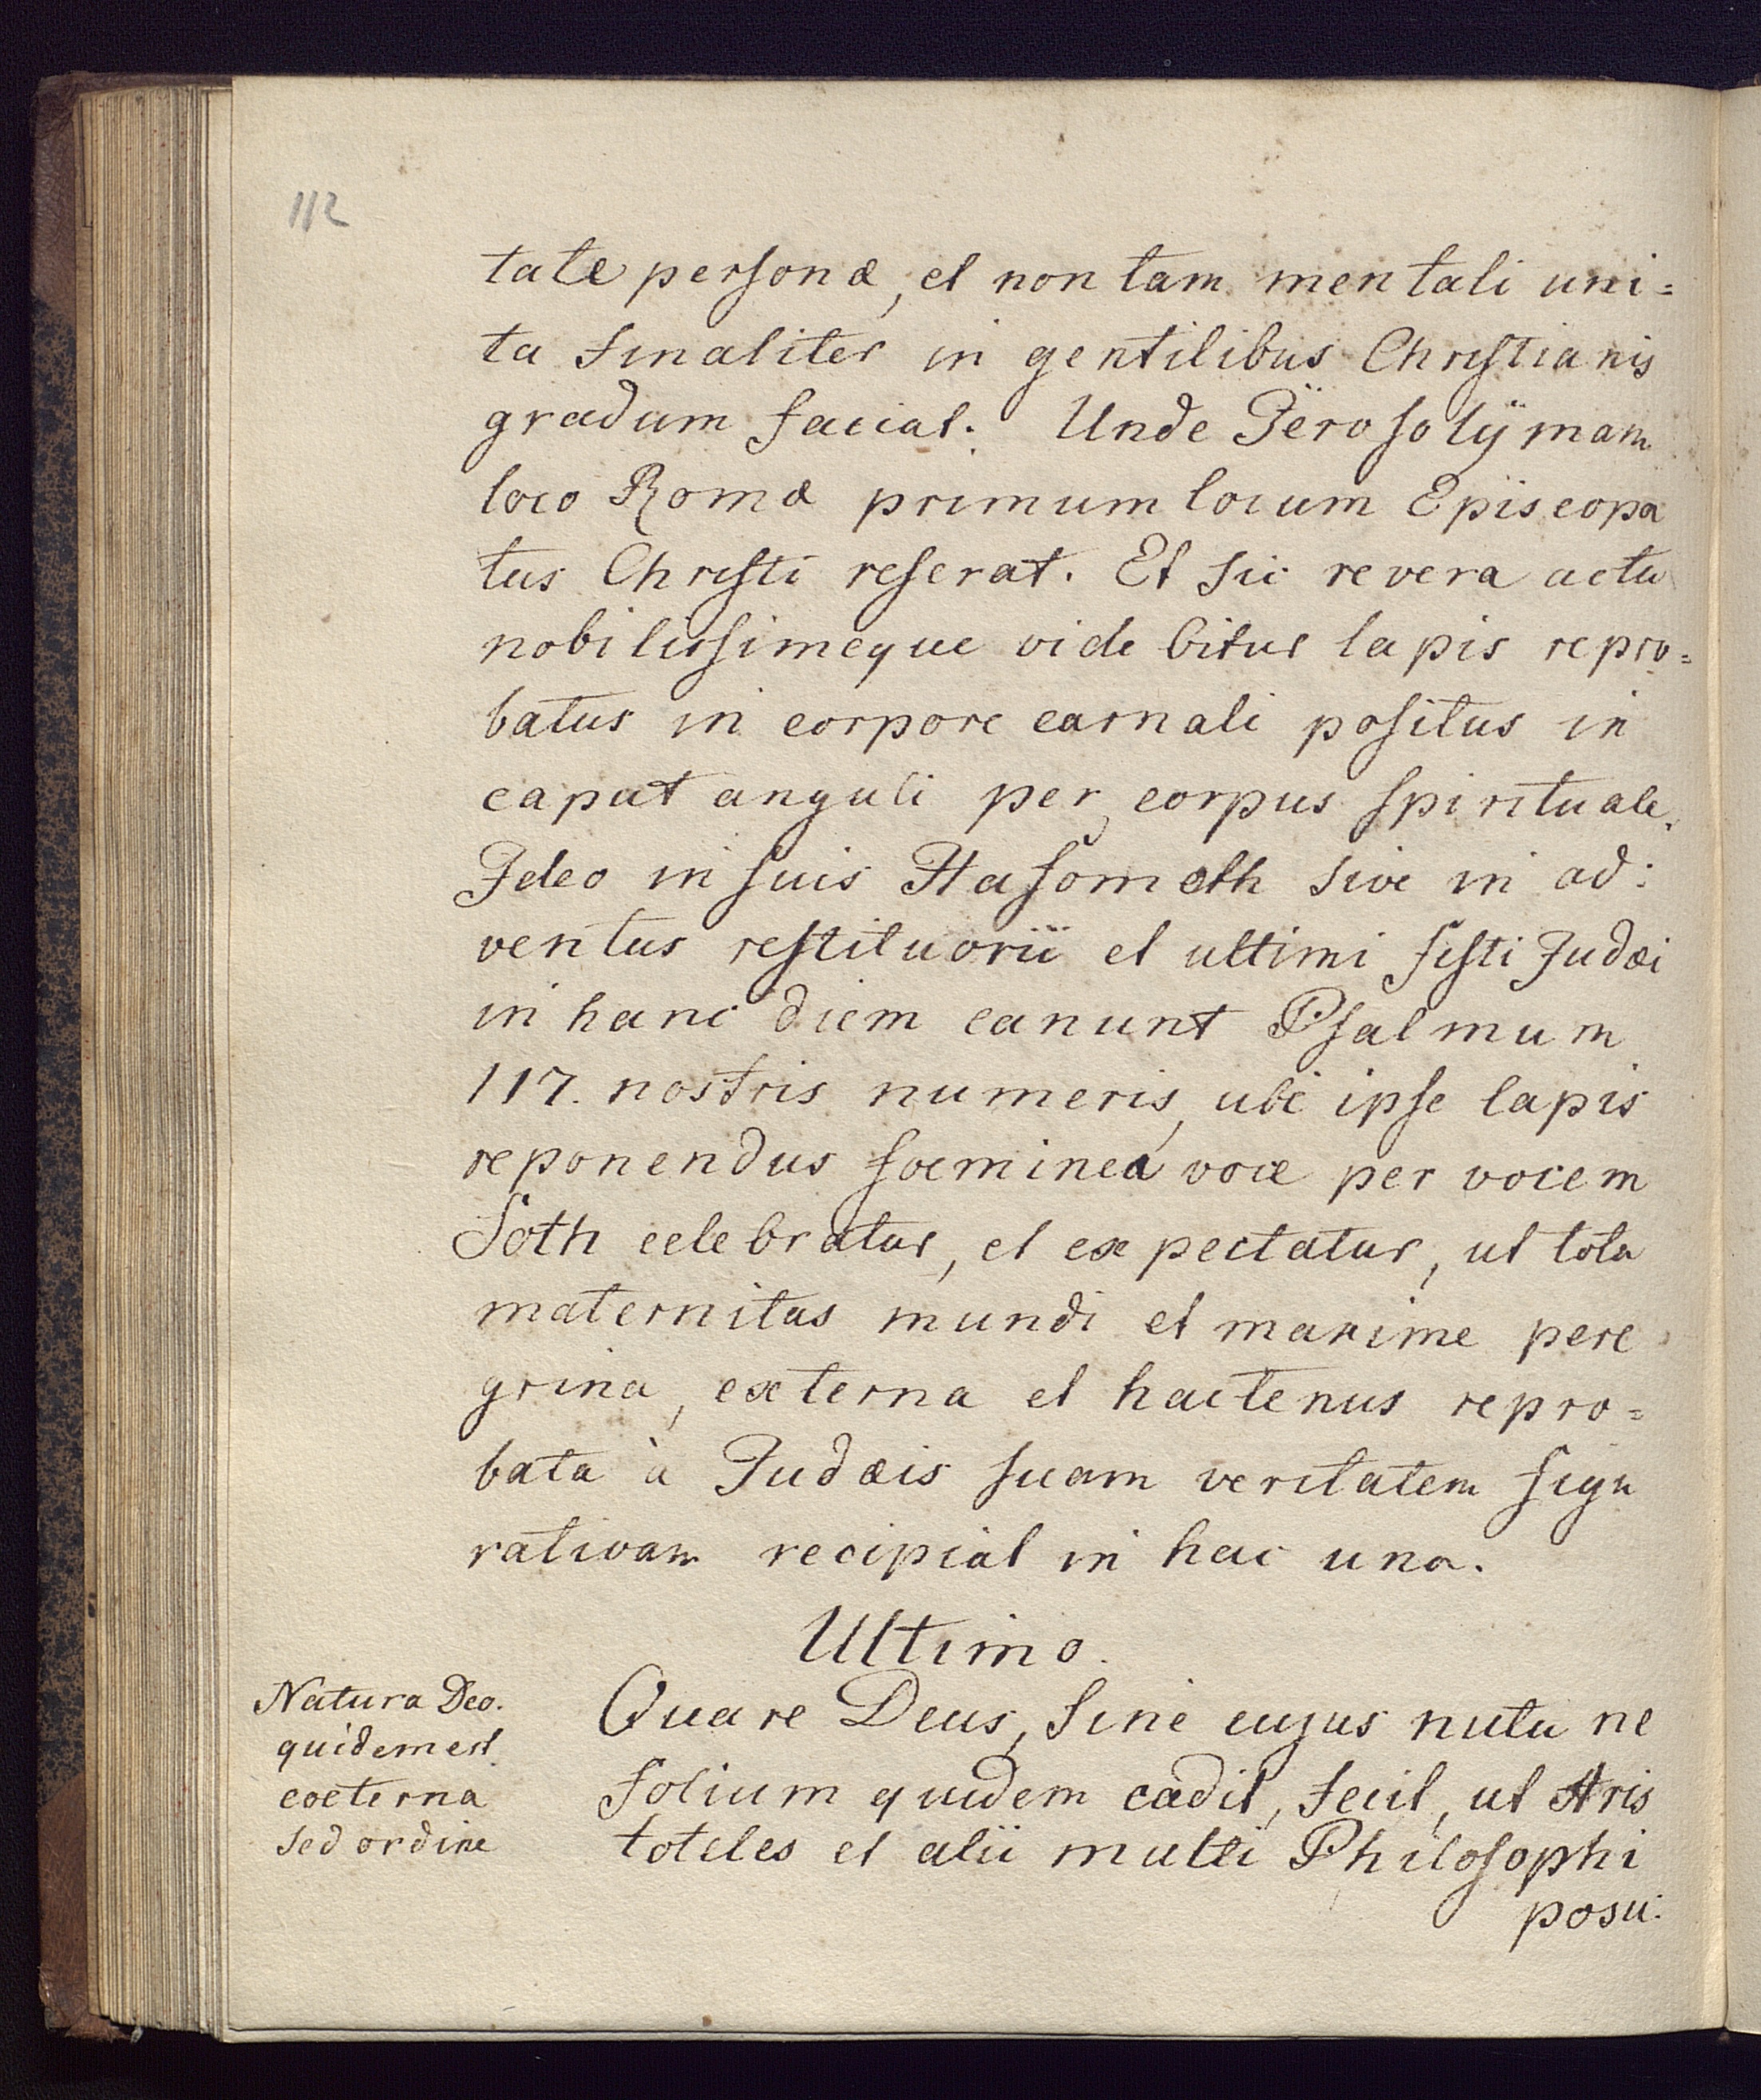 112
tate personæ, et non tam mentali uni=
ta finaliter in gentilibus Christianis
gradum faciat. Unde Jërosolÿmam
loco Romæ primum locum Episcopa
tus Christi reserat. Et sic revera actu
nobilissimeque videbitur lapis repro=
batus in corpore carnali positus in
caput anguli per corpus spirituale.
Ideo in suis Hasomoth sive in ad:
ventus restituorii et ultimi festi Judæi
in hanc diem canunt Psalmum
117. nostris numeris, ubi ipse lapis
reponendus foeminea voce per vocem
Soth celebratur, et expectatur, ut tota
maternitas mundi et maxime pere
grina, externa et hactenus repro=
bata à Judæis suam veritatem figu
rativam recipiat in hac una.
Ultimo.
Natura Deo.
quidem est
coeterna
sed ordine
Quare Deus, sine cujus nutu ne
folium quidem cadit, fecit, ut Aris
toteles et alii multi Philosophi
posu: